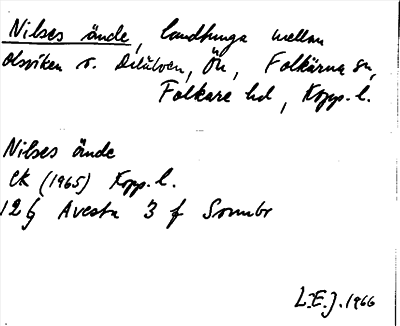 Nilses ände, landtunga mellan
Olsviken o. Dalälven, Ön, Folkärna sn,
Folkare hd, Kopp. l.
Nilses ände
EK (1965) Kopp. l.
12 G Avesta 3 f Sonnbo
L.E.J. 1966